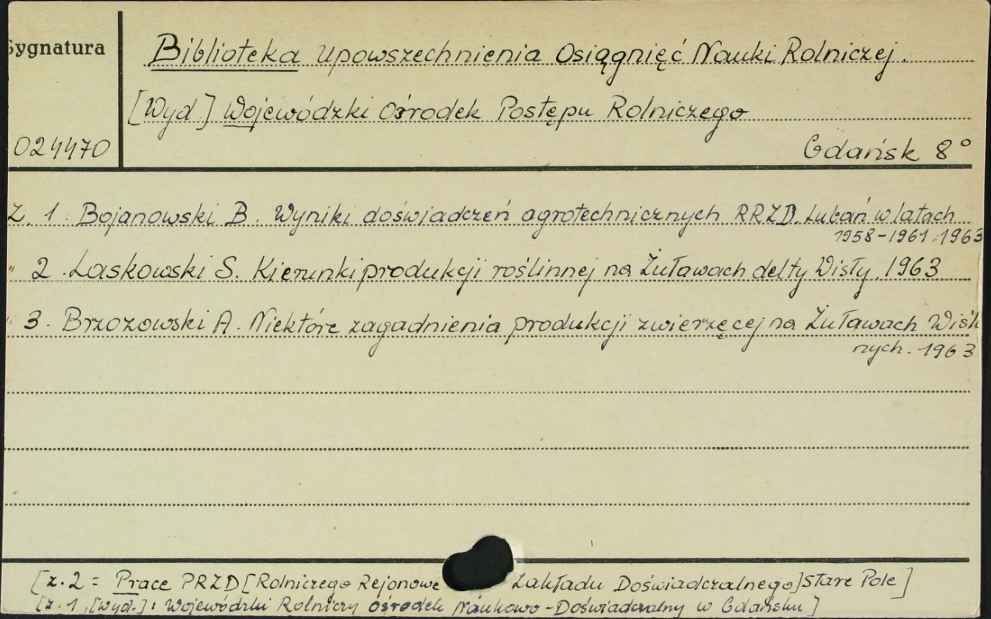 Sygnatura
Biblioteka Upowszechnienia Osiągnięć Nauki Rolniczej.
[Wyd] Wojewódzki Ośrodek Postępu Rolniczego
024470
Gdańsk 8°
Z. 1. Bojanowski B. Wyniki doświadczeń agrotechnicznych RRZD. Lubań w latach
1958-1961. 1963
" 2. Laskowski S. Kierunki produkcji roślinnej na Żuławach delty Wisły, 1963
" 3. Brzozowski A. Niektóre zagadnienia produkcji zwierzęcej na Żuławach Wiśla
nych. 1963
[z. 2 = Prace PRZD [Rolniczego Rejonowe Zakładu Doświadczalnego] Stare Pole]
[z. 1, [Wyd.]: Wojewódzki Rolniczy Ośrodek Naukowo-Doświadczalny w Gdańsku]